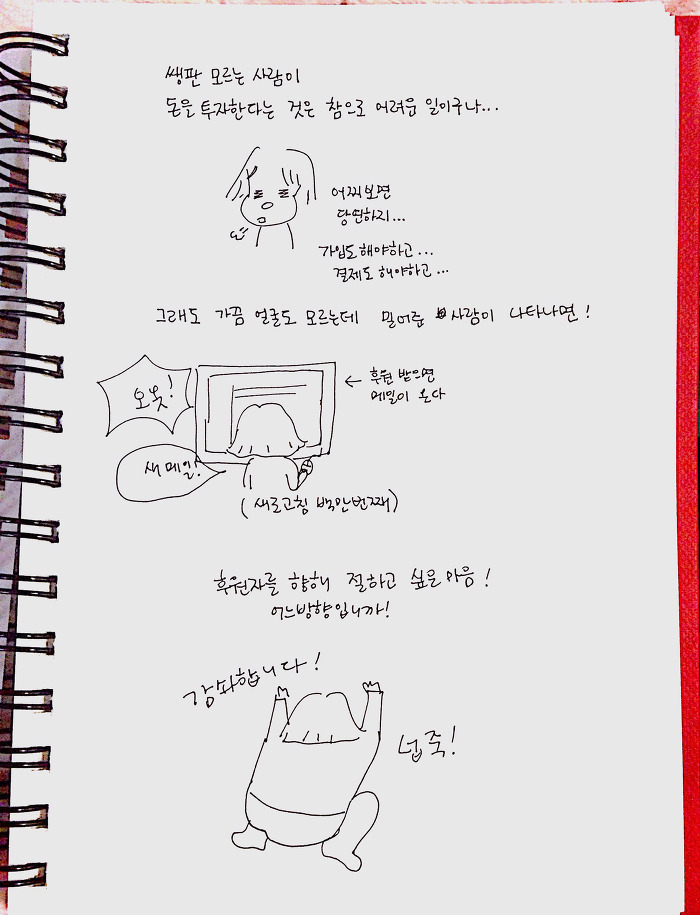 쌩판 모르는 사람이
돈을 투자한다는 것은 참으로 어려운 일이구나...
어찌보면
당연하지...
가입도 해야하고...
결제도 해야하고...
그래도 가끔 얼굴도 모르는데 밀어준 사람이 나타나면!
오옷!
← 후원 받으면
메일이 온다
새 메일!
(새로고침 백만번째)
후원자를 향해 절하고 싶은 마음!
어느방향입니까!
감솨합니다!
넙죽!